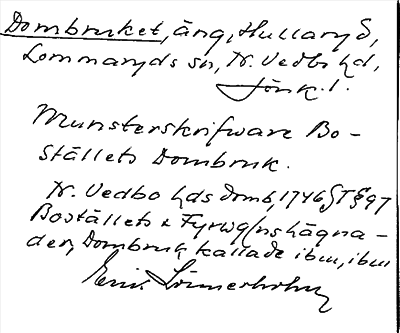 Dombruket, äng, Hullaryd,
Lommaryds sn, N. Vedbo hd,
Jönk. l.
Munsterskrifware Bo-
ställets Dombruk.
N. Vedbo hds domb, 1746 § 97
Boställets &
der, Dombruk kallade ibm, ibm